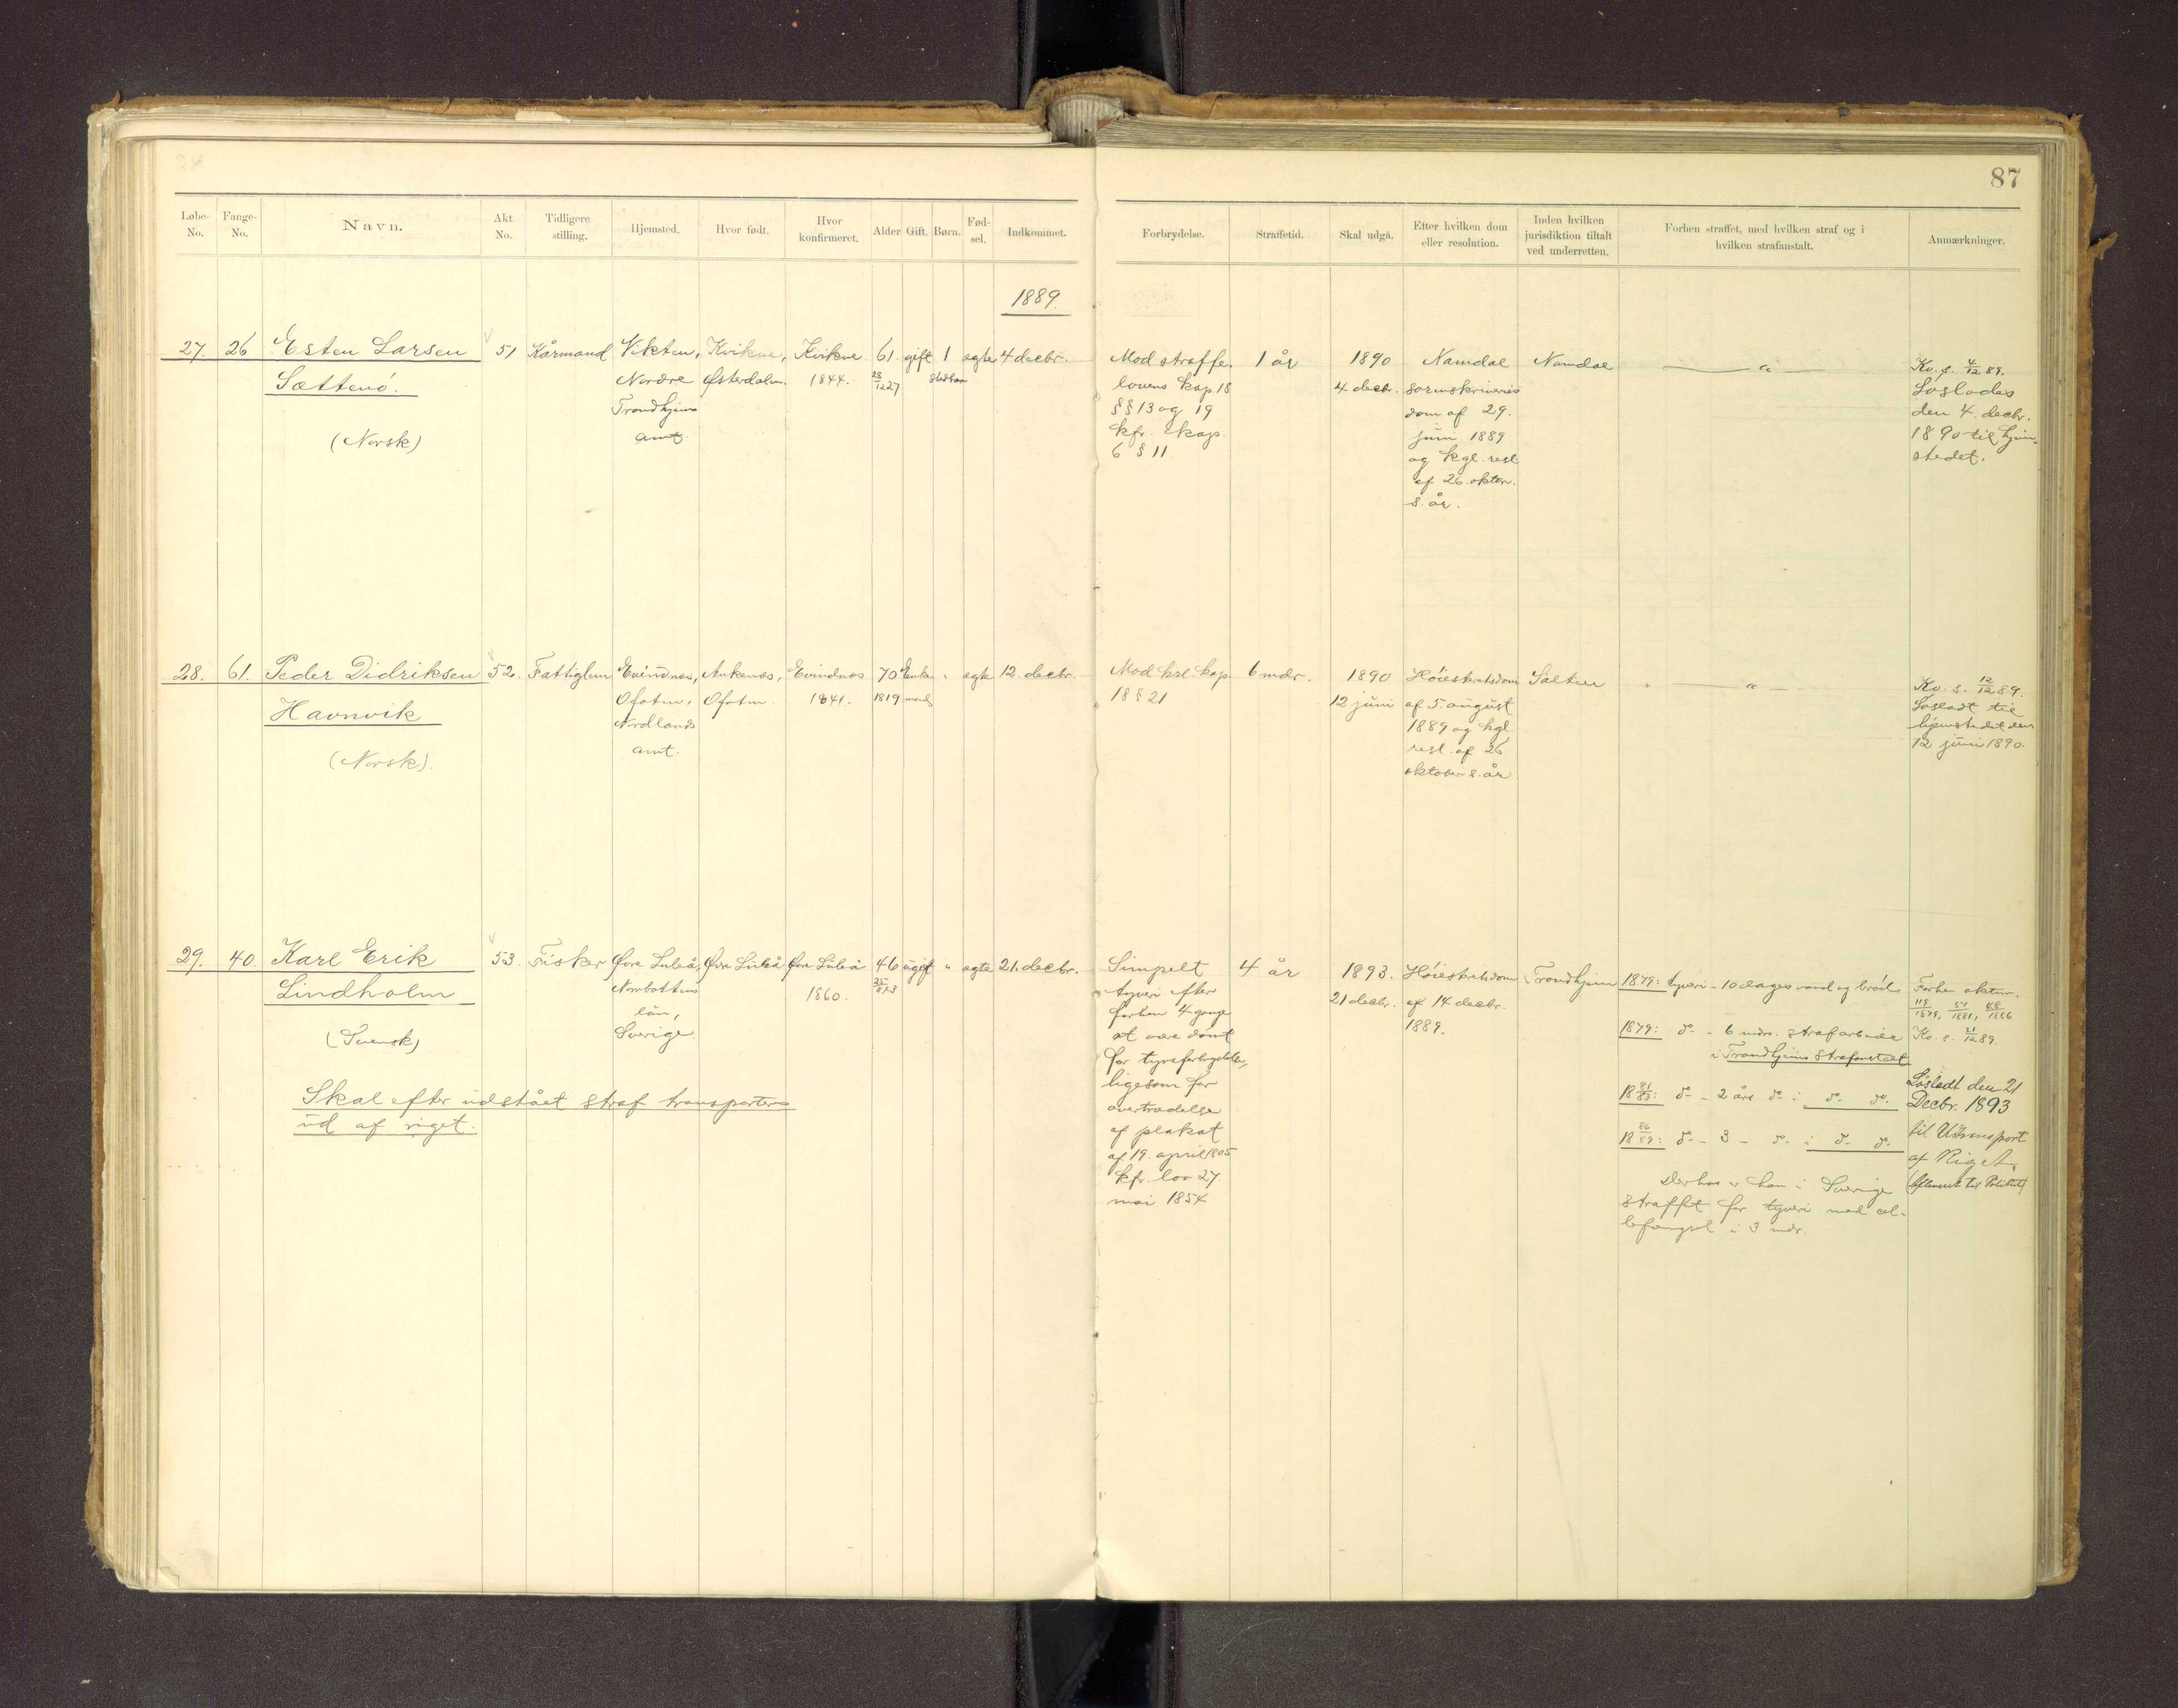 87
Løbe-No. Fange-No. Navn. Akt No. Tidligere stilling. Hjemsted. Hvor født. Hvor konfirmeret. Alder Gift. Børn. Fødsel. Indkommet.
Forbrydelse. Straffetid. Skal udgå. Efter hvilken dom eller resolution. Inden hvilken jurisdiktion tiltalt ved underretten. Forhen straffet, med hvilken straf og i hvilken strafanstalt. Anmærkninger.
1889.
27. 26 Esten Larsen
Sættenø.
(Norsk)
51
Kårmand
Vikten,
Nordre
Trondhjems
amt.
Kvikne,
Østerdalen.
Kvikne
1844.
61.
28/12 27
gift
1
ægte
4 decbr.
Mod straffe-
lovens kap. 18
§§ 13 og 19
kfr. kap.
6 § 11.
1 år
1890
4 decbr.
Namdal
sorenskriveries
dom af 29.
juni 1889
og kgl. resl.
af 26. oktbr.
s. år.
Namdal
"
Kv. s. 4/12 89.
Løslades
den 4. decbr.
1890 til hjem-
stedet.
28. 61. Peder Didriksen
Havnvik
(Norsk).
52.
Fattiglem
Evindnæs,
Ofoten,
Nordlands
amt.
Ankenæs,
Ofoten.
Evindnæs
1841.
70
1819
Enke-
mand
"
ægte
12. decbr.
Mod krl. kap.
18 § 21
6 mdr.
1890
12 juni
Høiesteretsdom
af 5 august
1889 og kgl.
resl. af 26
oktober s. år.
Salten
"
Kv. s. 12/12 89.
Løsladt til
hjemstedet den
12 juni 1890.
29. 40. Karl Erik
Lindholm
(Svensk)
Skal efter udstået straf transporteres
ud af riget.
53.
Fisker
Øvre Luleå,
Norrbottens
län,
Sverige.
Øvre Luleå,
Øvre Luleå
1860.
46
ugift
"
ægte
21. decbr.
Simpelt
tyveri efter
forhen 4 gange
at være dømt
for tyvsforbrydelser,
ligesom for
overtrædelse
af plakat
af 19. april 1805
kfr. lov 27
mai 1854
4 år
1893.
21 decbr.
Høiesteretsdom
af 14 decbr.
1889.
Trondhjem
1879: tyveri – 10 dages vand og brød.
1879: do – 6 mdrs. strafarbeide
i Trondhjems strafanstalt
18 81/83: do – 2 års do i do do.
18 86/89: do – 3 – do i do do.
Derhos er han i Sverige
straffet for tyveri med cel-
lefængsel i 3 mdr.
Forhen aktnr.
119/1879, 51/1881, 48/1886
Kv. s. 21/12 89.
Løsladt den 21
Decbr. 1893
til Udtransport
af Riget.
(Afleveret til Politiet)